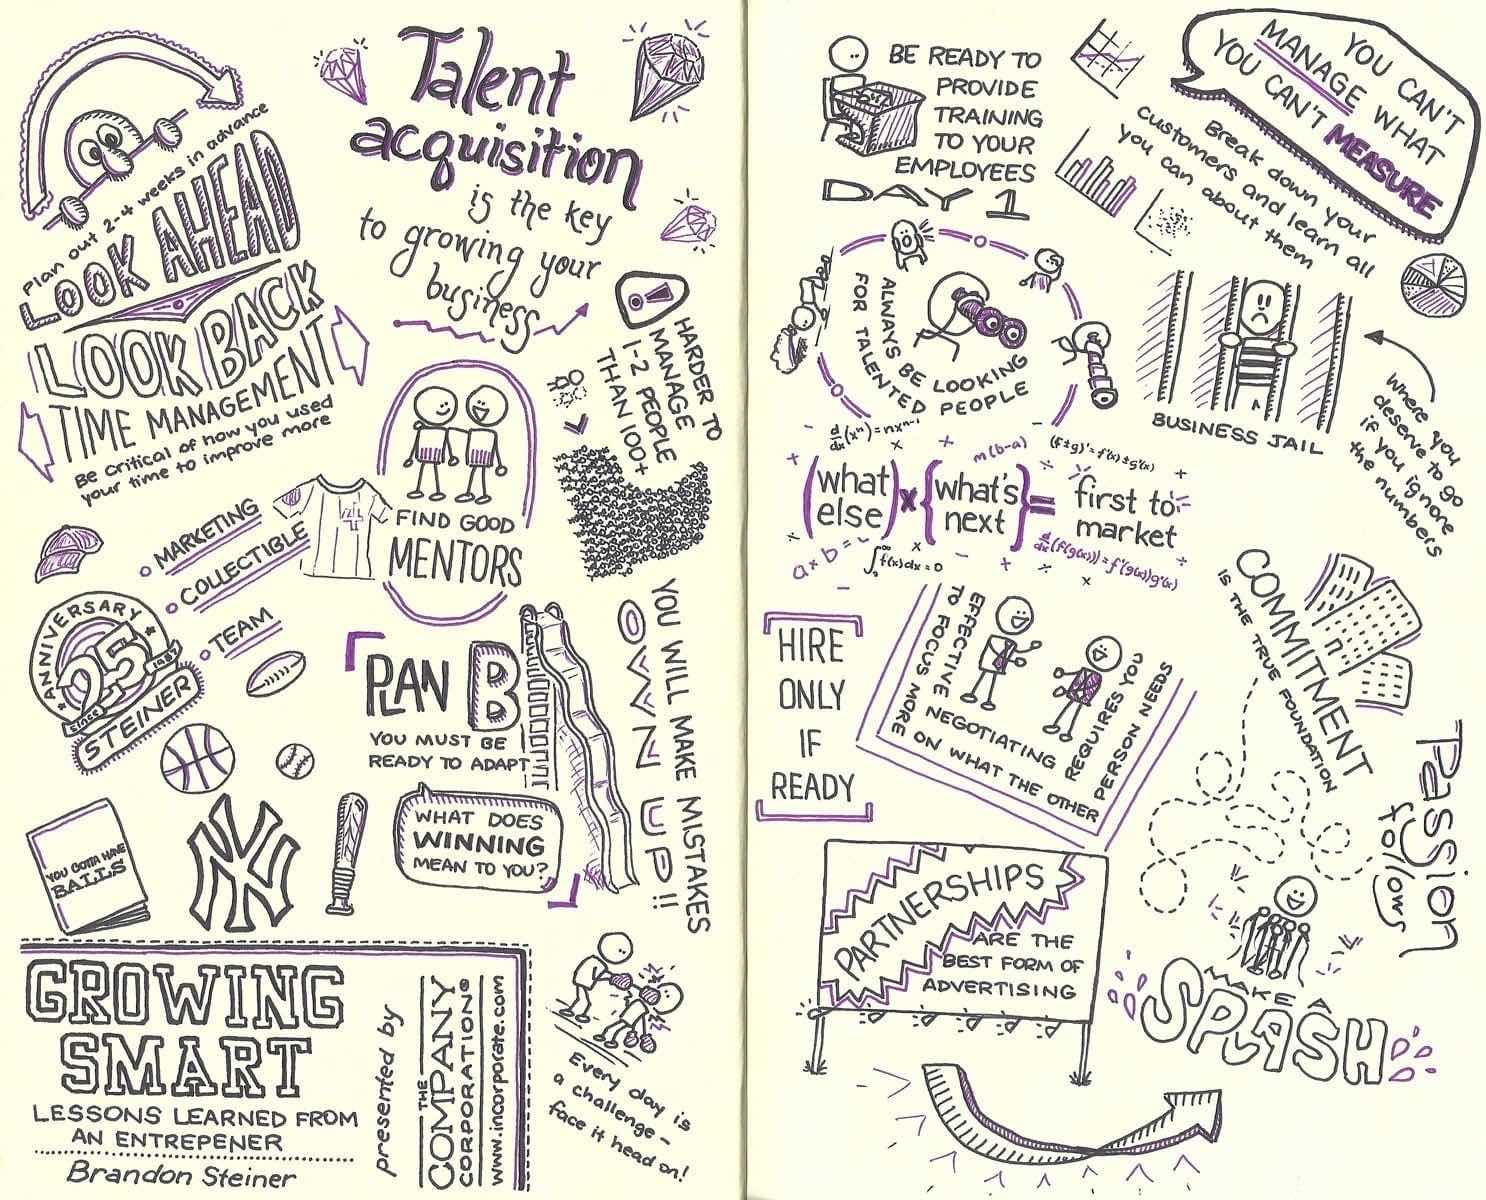 Plan out 2-4 weeks in advance
LOOK AHEAD
LOOK BACK
TIME MANAGEMENT
Be critical of how you used
your time to improve more
Talent
acquisition
is the key
to growing your
business
HARDER TO
MANAGE
1-2 PEOPLE
THAN 100+
FIND GOOD
MENTORS
MARKETING
COLLECTIBLE
TEAM
ANNIVERSARY
25
since 1987
STEINER
PLAN B
YOU MUST BE
READY TO ADAPT
WHAT DOES
WINNING
MEAN TO YOU?
YOU WILL MAKE MISTAKES
OWN UP!!
YOU GOTTA HAVE
BALLS
NY
GROWING
SMART
LESSONS LEARNED FROM
AN ENTREPENER
Brandon Steiner
presented by
THE
COMPANY
CORPORATION®
www.incorporate.com
Every day is
a challenge -
face it head on!
BE READY TO
PROVIDE
TRAINING
TO YOUR
EMPLOYEES
DAY 1
YOU CAN'T
MANAGE WHAT
YOU CAN'T MEASURE
Break down your
customers and learn all
you can about them
ALWAYS BE LOOKING
FOR TALENTED PEOPLE
BUSINESS JAIL
Where you
deserve to go
if you ignore
the numbers
d/dx(xⁿ)=nxⁿ⁻¹
m(b-a)
(f±g)'=f'(x)±g'(x)
(what else) x {what's next} = first to market
a×b=
∫f(x)dx=0
d/dx(f(g(x)))=f'(g(x))g'(x)
HIRE
ONLY
IF
READY
EFFECTIVE NEGOTIATING REQUIRES YOU
TO FOCUS MORE ON WHAT THE OTHER PERSON NEEDS
COMMITMENT
IS THE TRUE FOUNDATION
Passion
follows
PARTNERSHIPS
ARE THE
BEST FORM OF
ADVERTISING
MAKE A
SPLASH